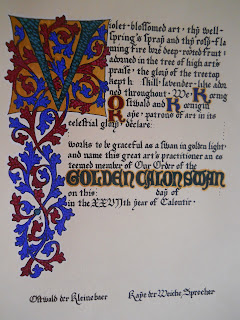 Violet-blossomed art, thy well-
spring's spray and thy rosy-fla
ming fire wse deep-rooted fruit
adorned in the tree of high art's
praise, the glory of the treetop
kept h skill, lavender-like ador
ned throughout. We Koenig
Ostwald and Koenigin
Kaye, patrons of art in its
celestial glory declare:
works to be graceful as a swan in golden light
and name this great art's practitioner an es
teemed member of Our Order of the
GOLDEN CALON SWAN
on this: day of
in the XXVIIth year of Calontir.
Ostwald der Kleinebaer Kaye der Weiche, Sprecher